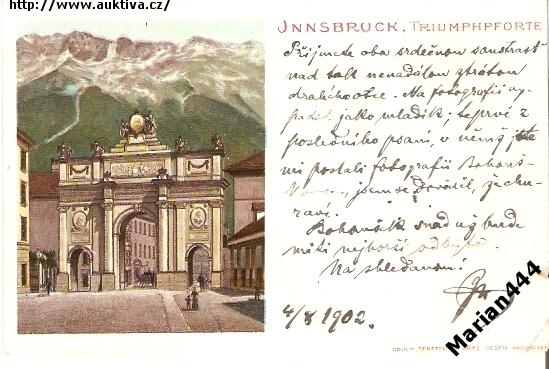 http://www.auktiva.cz/
INNSBRUCK, TRIUMPHPFORTE
Přijmete oba srdečnou soustrast
nad tak nenadálou ztrátou
drahého otce. Na fotografii vy-
padal jako mladík; teprve z
posledního psaní, v němž jste
mi poslali fotografii
jsem se dověděl, že chu-
raví.
snad už bude
míti nejhorší odbyto.
Na shledanou!
4/8 1902.
Marian444